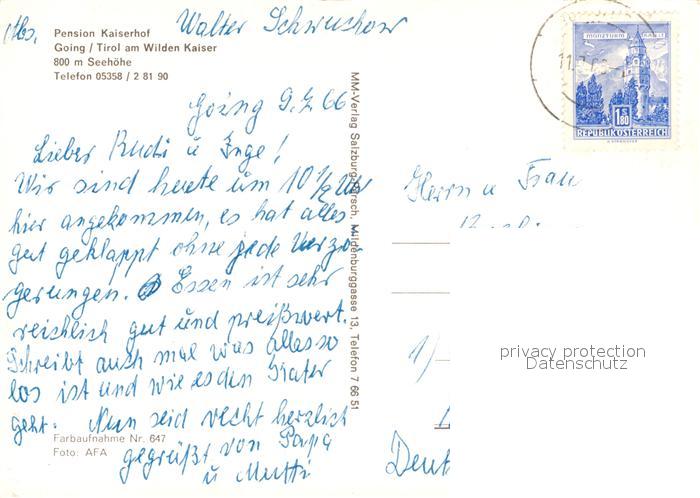 Abs. Walter Schwuchow
Pension Kaiserhof
Going / Tirol am Wilden Kaiser
800 m Seehöhe
Telefon 05358 / 2 81 90
MÜNZTURM HALL I.T.
1.80
REPUBLIK ÖSTERREICH
Going 9.7.66
Lieber Rudi u Inge!
Wir sind heute um 10 1/2 Uhr
hier angekommen, es hat alles
gut geklappt ohne jede Verzö-
gerungen. Essen ist sehr
reichlich gut und preißwert.
Schreibt auch mal was alles so
los ist und wie es den
geht. Nun seid recht herzlich
gegrüßt von Papa
u Mutti
Farbaufnahme Nr. 647
Foto: AFA
MM-Verlag Salzburg-Parsch, Mildenburggasse 13, Telefon 7 66 51
Herrn u Frau
1)
privacy protection
Datenschutz
Deut